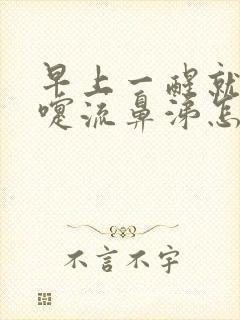 早上一醒就
嚏流鼻涕怎
不言不字